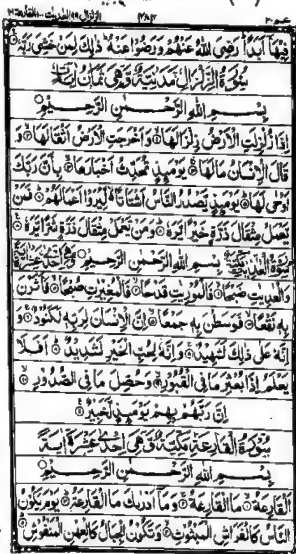 عم ٣٠ ٤٨٢ الزلزال ٩٩ العديت ١٠٠ القارعة ١٠١
فِيْهَاۤ اَبَدًا رَضِيَ اللّٰهُ عَنْهُمْ وَرَضُوْا عَنْهُ ذٰلِكَ لِمَنْ خَشِيَ رَبَّهٗ
سُوْرَةُ الزِّلْزَالِ مَدَنِيَّةٌ وَّهِيَ ثَمَانُ اٰيَاتٍ
بِسْمِ اللّٰهِ الرَّحْمٰنِ الرَّحِيْمِ
اِذَا زُلْزِلَتِ الْاَرْضُ زِلْزَالَهَا وَاَخْرَجَتِ الْاَرْضُ اَثْقَالَهَا وَ
قَالَ الْاِنْسَانُ مَالَهَا يَوْمَئِذٍ تُحَدِّثُ اَخْبَارَهَا بِاَنَّ رَبَّكَ
اَوْحٰى لَهَا يَوْمَئِذٍ يَّصْدُرُ النَّاسُ اَشْتَاتًا لِّيُرَوْا اَعْمَالَهُمْ فَمَنْ
يَّعْمَلْ مِثْقَالَ ذَرَّةٍ خَيْرًا يَّرَهٗ وَمَنْ يَّعْمَلْ مِثْقَالَ ذَرَّةٍ شَرًّا يَّرَهٗ
سُوْرَةُ الْعٰدِيٰتِ بِسْمِ اللّٰهِ الرَّحْمٰنِ الرَّحِيْمِ
وَالْعٰدِيٰتِ ضَبْحًا فَالْمُوْرِيٰتِ قَدْحًا فَالْمُغِيْرٰتِ صُبْحًا فَاَثَرْنَ
بِهٖ نَقْعًا فَوَسَطْنَ بِهٖ جَمْعًا اِنَّ الْاِنْسَانَ لِرَبِّهٖ لَكَنُوْدٌ وَ
اِنَّهٗ عَلٰى ذٰلِكَ لَشَهِيْدٌ وَاِنَّهٗ لِحُبِّ الْخَيْرِ لَشَدِيْدٌ اَفَلَا
يَعْلَمُ اِذَا بُعْثِرَ مَا فِى الْقُبُوْرِ وَحُصِّلَ مَا فِى الصُّدُوْرِ
اِنَّ رَبَّهُمْ بِهِمْ يَوْمَئِذٍ لَّخَبِيْرٌ
سُوْرَةُ الْقَارِعَةِ مَكِّيَّةٌ وَّهِيَ اِحْدٰى عَشَرَةَ اٰيَةً
بِسْمِ اللّٰهِ الرَّحْمٰنِ الرَّحِيْمِ
اَلْقَارِعَةُ مَا الْقَارِعَةُ وَمَاۤ اَدْرٰىكَ مَا الْقَارِعَةُ يَوْمَ يَكُوْنُ
النَّاسُ كَالْفَرَاشِ الْمَبْثُوْثِ وَتَكُوْنُ الْجِبَالُ كَالْعِهْنِ الْمَنْفُوْشِ